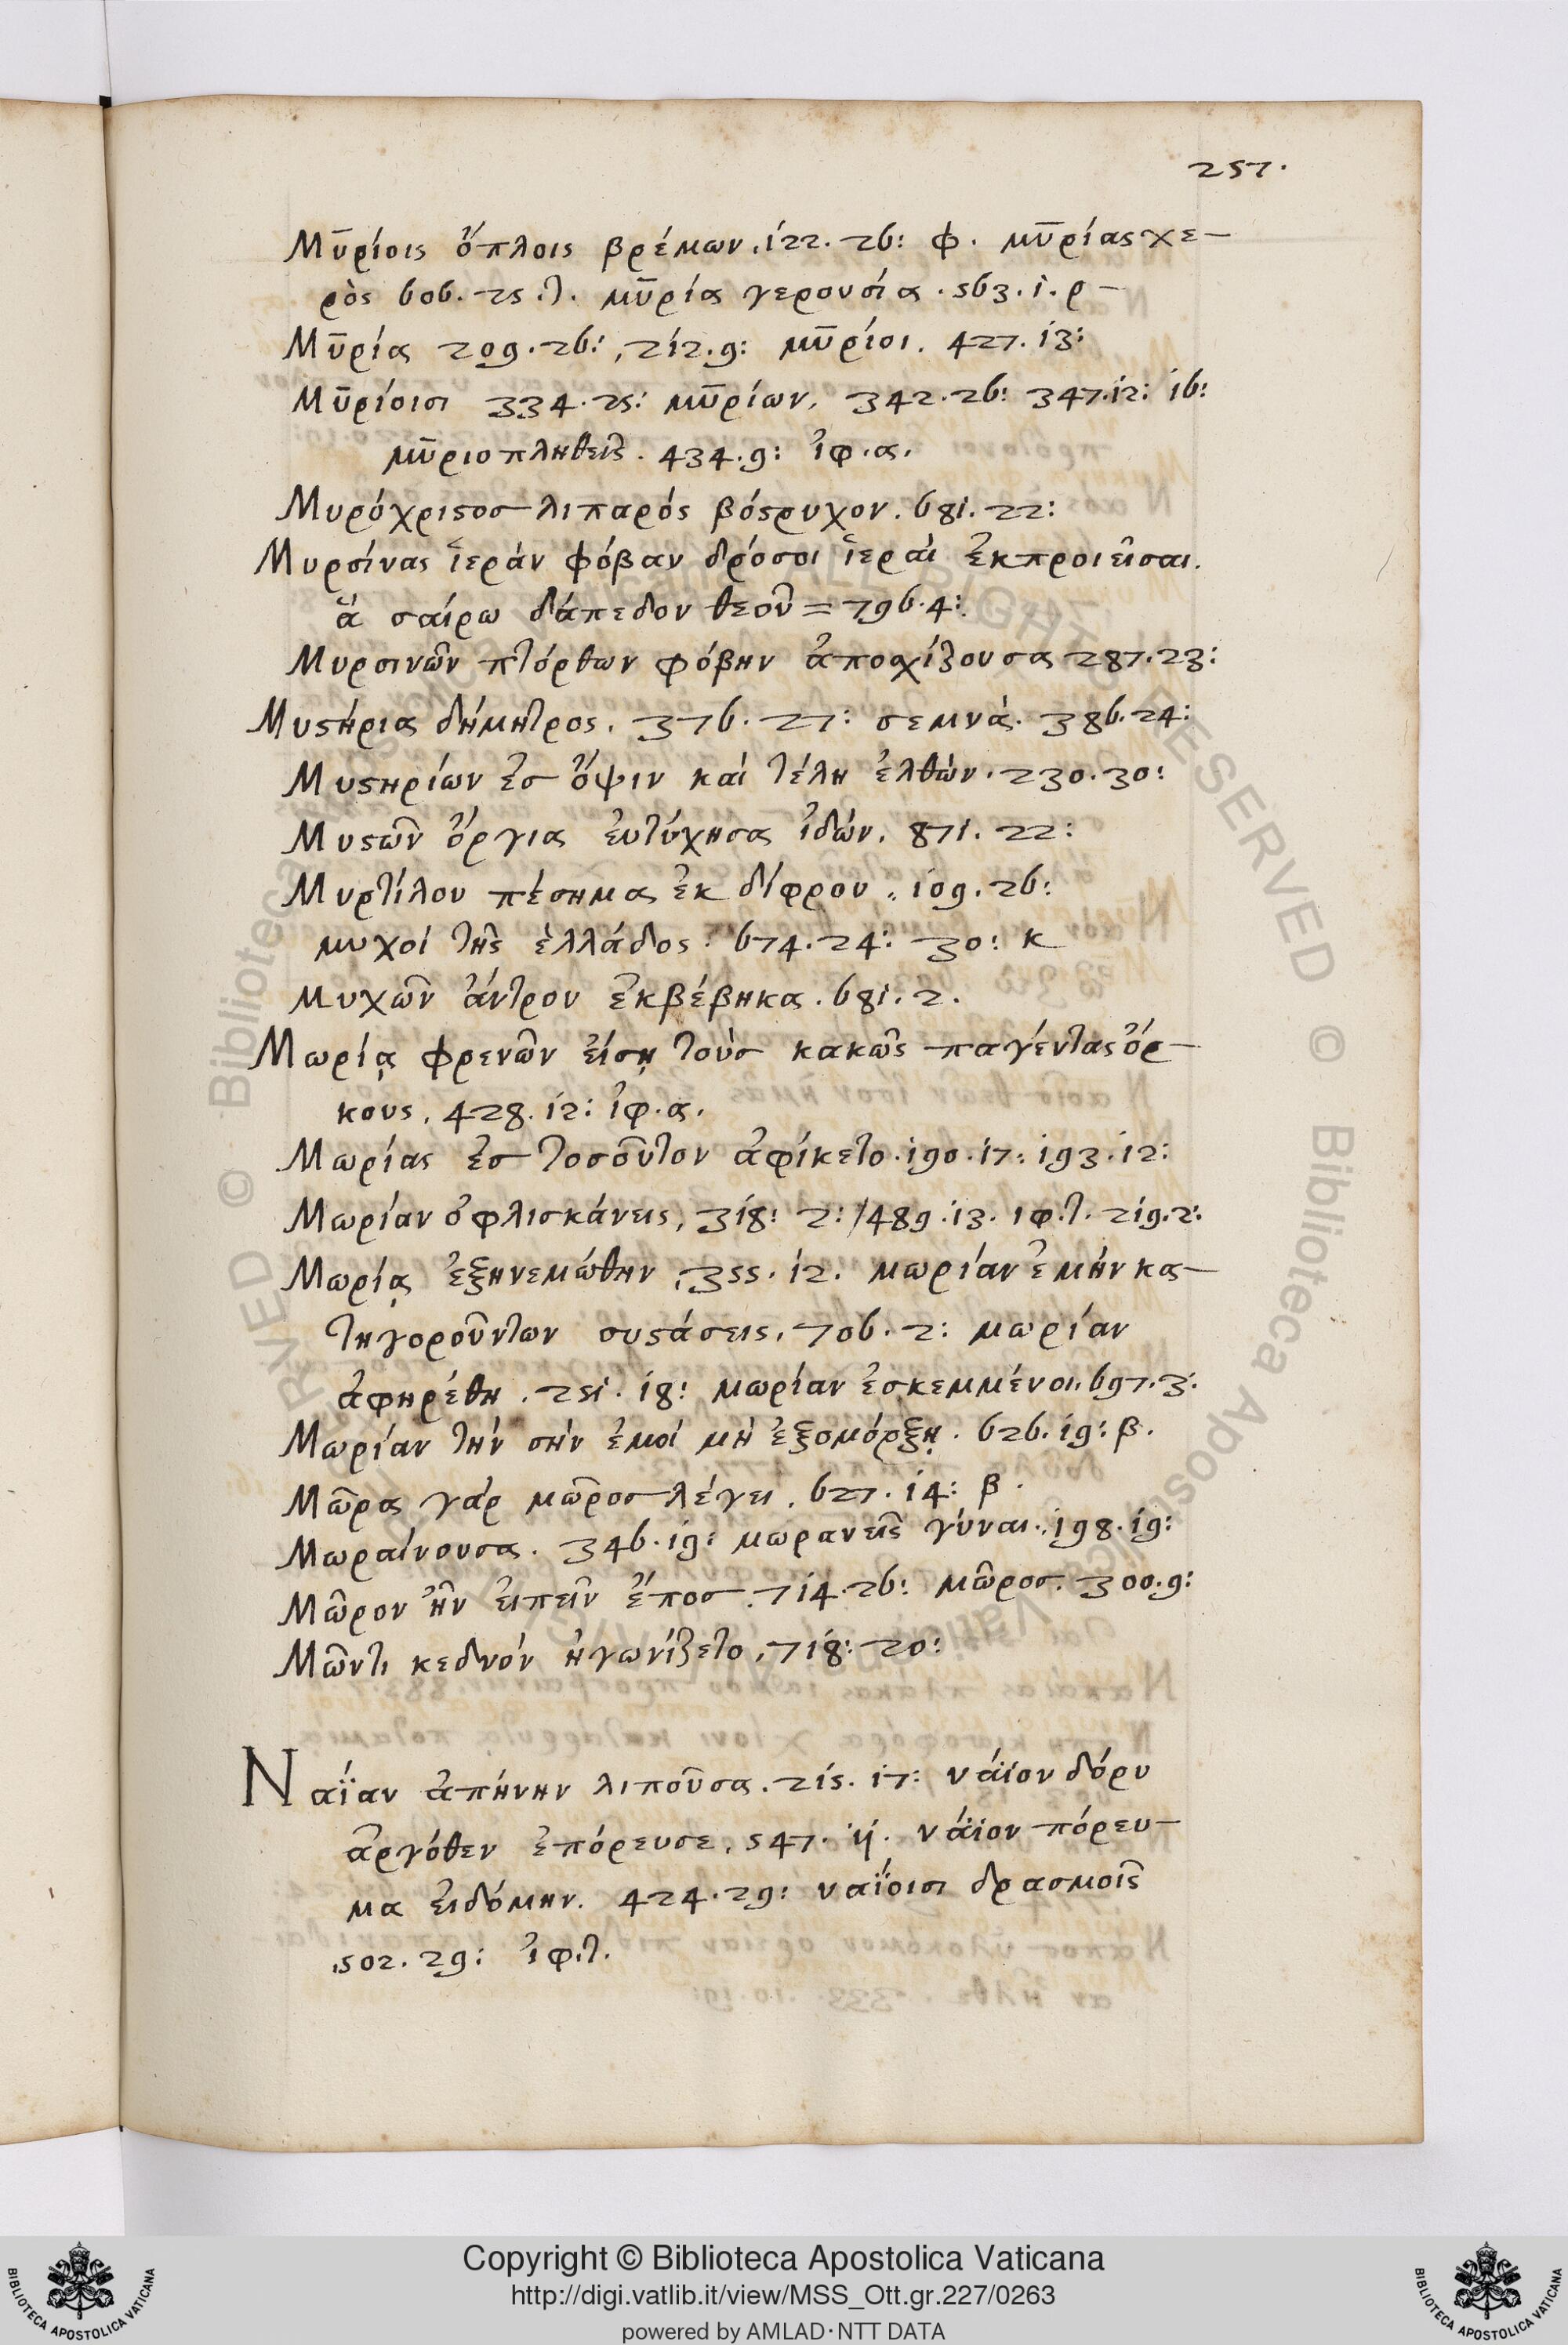 257.
Μῡρίοις ὅπλοις βρέμων. 122. 26: φ. μῡρίας χε-
ρὸς 606. 25. τ. μῡρία γερουσία. 563. 1. ρ-
Μῡρία 209. 26:, 212. 9: μῡρίοι. 427. 13:
Μῡρίοισι 334. 25: μῡρίων, 342. 26: 347. 12: 16:
μῡριοπληθεῖς. 434. 9: ἰφ. α.
Μυρόχριστος λιπαρός βόστρυχον. 681. 22:
Μυρσίνας ἱεράν φόβαν δρόσοι ἱεραί ἐκπροιεῖσαι.
ἅ σαίρω δάπεδον θεοῦ = 796. 4:
Μυρσινῶν πτόρθων φόβην ἀποσχίζουσα 287. 23:
Μυστήρια δήμητρος. 376. 27: σεμνά. 386. 24:
Μυστηρίων ἐς ὄψιν καί τέλη ἐλθών. 230. 30:
Μυστῶν ὄργια ἐυτύχησα ἰδών. 871. 22:
Μυρτίλου πέσημα ἐκ δίφρου,, 109. 26:
μυχοί τῆς ἑλλάδος. 674. 24: 30: κ
Μυχῶν ἄντρον ἐκβέβηκα. 681. 2.
Μωρίᾳ φρενῶν εἴσῃ τοὺς κακῶς παγέντας ὅρ-
κους. 428. 12: ἰφ. α.
Μωρίας ἐς τοσοῦτον ἀφίκετο. 190. 17: 193. 12:
Μωρίαν ὀφλισκάνεις, 318: 2: /489. 13. ιφ. τ. 219. 2:
Μωρίᾳ ἐξηνεμώθην, 355. 12. μωρίαν ἐμήν κα-
τηγορούντων συστάσεις, 706. 2: μωρίαν
ἀφηρέθη. 251. 18: μωρίαν ἐσκεμμένοι. 697. 3:
Μωρίαν τήν σήν ἐμοί μή ἐξομόρξῃ. 626. 19: β.
Μῶρα γάρ μῶρος λέγει. 627. 14: β.
Μωραίνουσα. 346. 19: μωρανεῖς γύναι. 198. 19:
Μῶρον ἦν εἰπεῖν ἔπος. 714. 26: μῶρος. 300. 9:
Μῶντι κεδνόν ἠγωνίζετο, 718: 20:
Ναΐαν ἀπήνην λιποῦσα. 215. 17: νάϊον δόρυ
ἀργόθεν ἐπόρευσε. 547. 11. νάϊον πόρευ-
μα εἰδόμην. 424. 29: ναΐοισι δρασμοῖς
502. 29: ἰφ. τ.
Copyright © Biblioteca Apostolica Vaticana
http://digi.vatlib.it/view/MSS_Ott.gr.227/0263
powered by AMLAD·NTT DATA